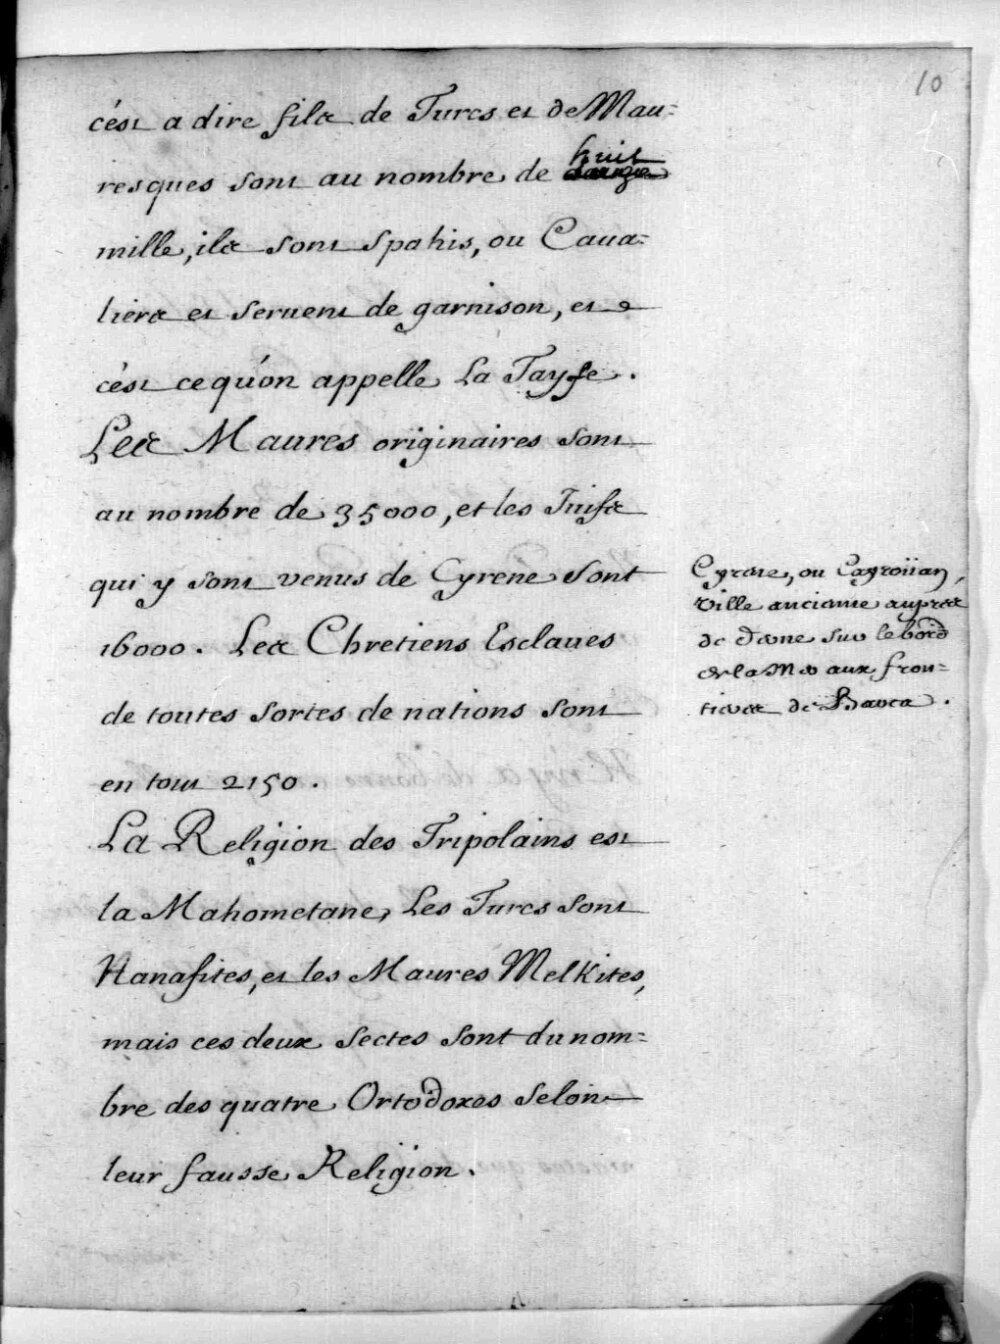 10
c'est a dire fils de Turcs et de Mau=
resques sont au nombre de huit
mille, ils sont Spahis, ou Caua=
liers et seruent de garnison, et
c'est ce qu'on appelle La Tayfe.
Les Maures originaires sont
au nombre de 35000, et les Juifs
qui y sont venus de Cyrene sont
16000. Les Chretiens Esclaues
de toutes sortes de nations sont
en tout 2150.
La Religion des Tripolains est
la Mahometane, Les Turcs sont
Hanafites, et les Maures Melkites,
mais ces deux sectes sont du nom=
bre des quatre Ortodoxes selon
leur fausse Religion.
Cyrene, ou Cayroüan,
ville ancienne aupres
de Derne sur le bord
de la Mer aux fron=
tieres de Barca.